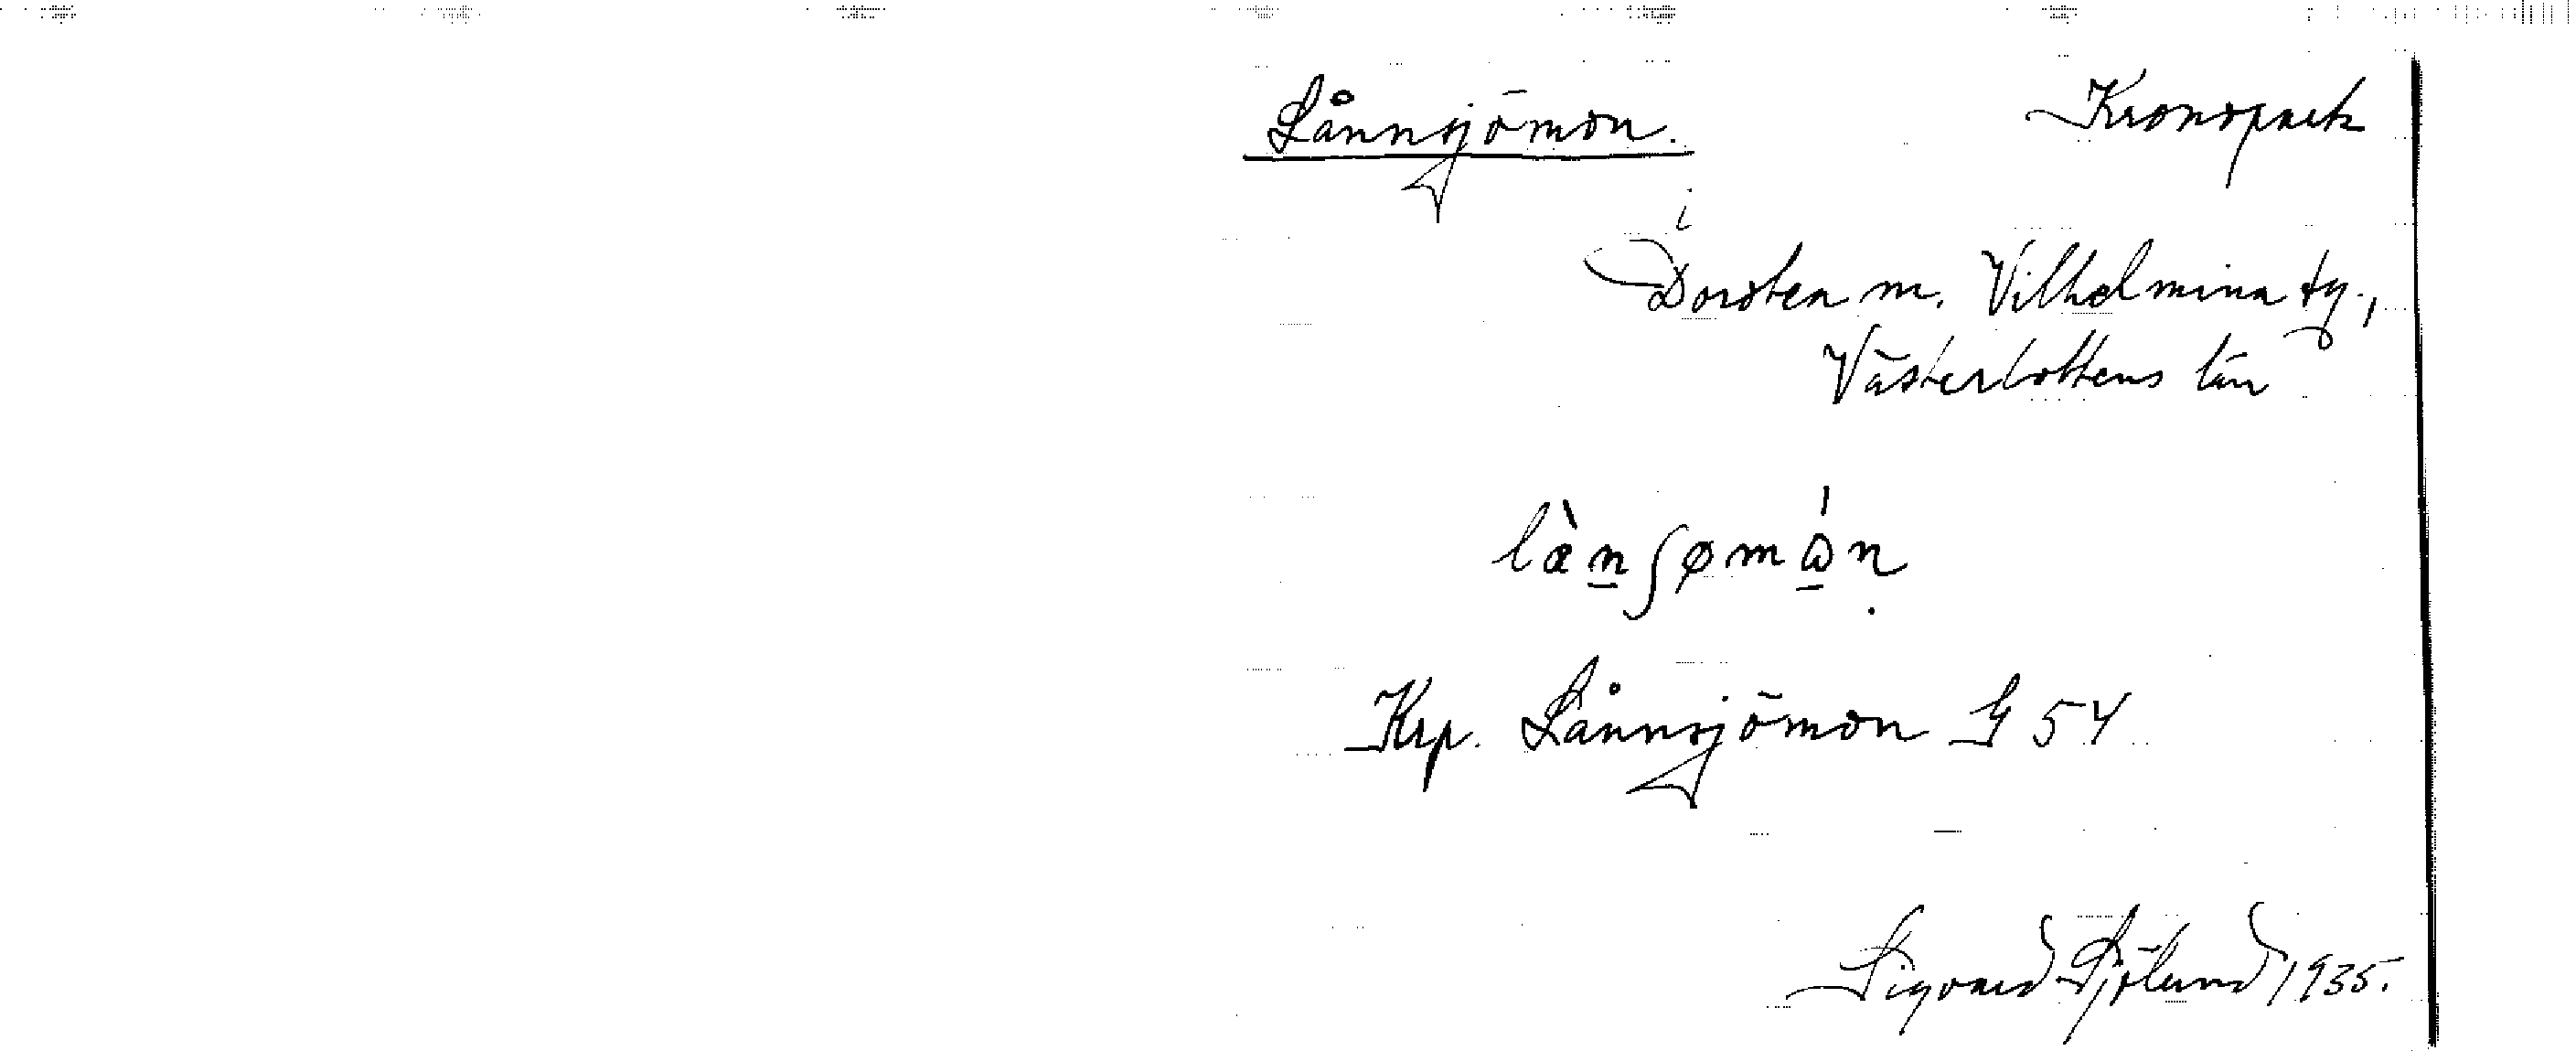 Lånnsjömon. Kronopark
i
Dorotea m. Vilhelmina tg.,
Västerbottens län
læ̀n̲ʃømώ̲ṇ
Krp. Lånnsjömon G 54
Sigvard Sjölund 1935.